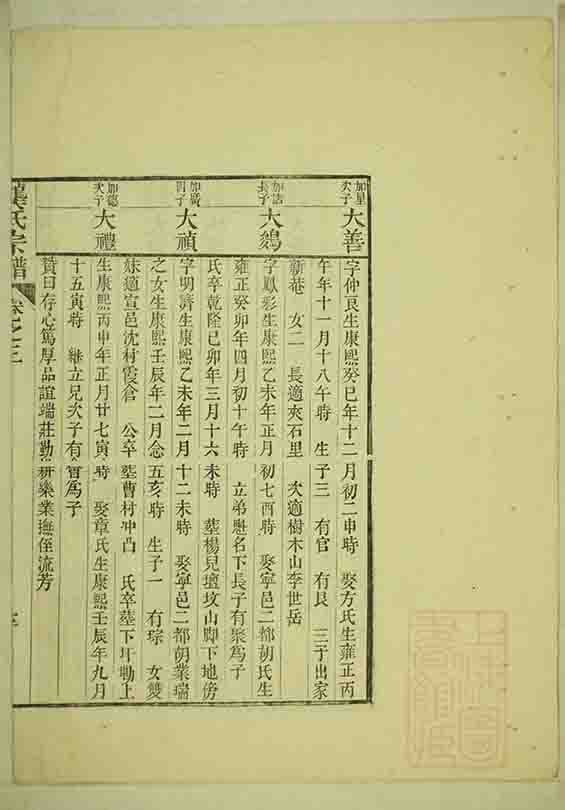 加星次子
大善
字仲良生康熙癸巳年十二月初二申時 娶方氏生雍正丙
午年十一月十八午時 生子三 有官 有良 三子出家
新菴 女二 長適夾石里 次適樹木山李世岳
加誌長子
大鵕
字鳳彩生康熙乙未年正月初七酉時 娶寧邑二都胡氏生
雍正癸卯年四月初十午時 立弟懋名下長子有聚爲子
氏卒乾隆己卯年三月十六未時 塟楊兒壇墳山脚下地傍
加廣四子
大禎
字明濟生康熙乙未年二月十二未時 娶寧邑二都胡業瑞
之女生康熙壬辰年二月念五亥時 生子一 有琮 女雙
妹適宣邑沈村霞倉 公卒塟曹村冲凸 氏卒塟下圩勘上
加德次子
大禮
生康熙丙申年正月廿七寅時 娶章氏生康熙壬辰年九月
十五寅時 継立兄次子有會爲子
贊曰存心篤厚品誼端莊勤耕樂業撫侄流芳
氏宗譜
卷之三